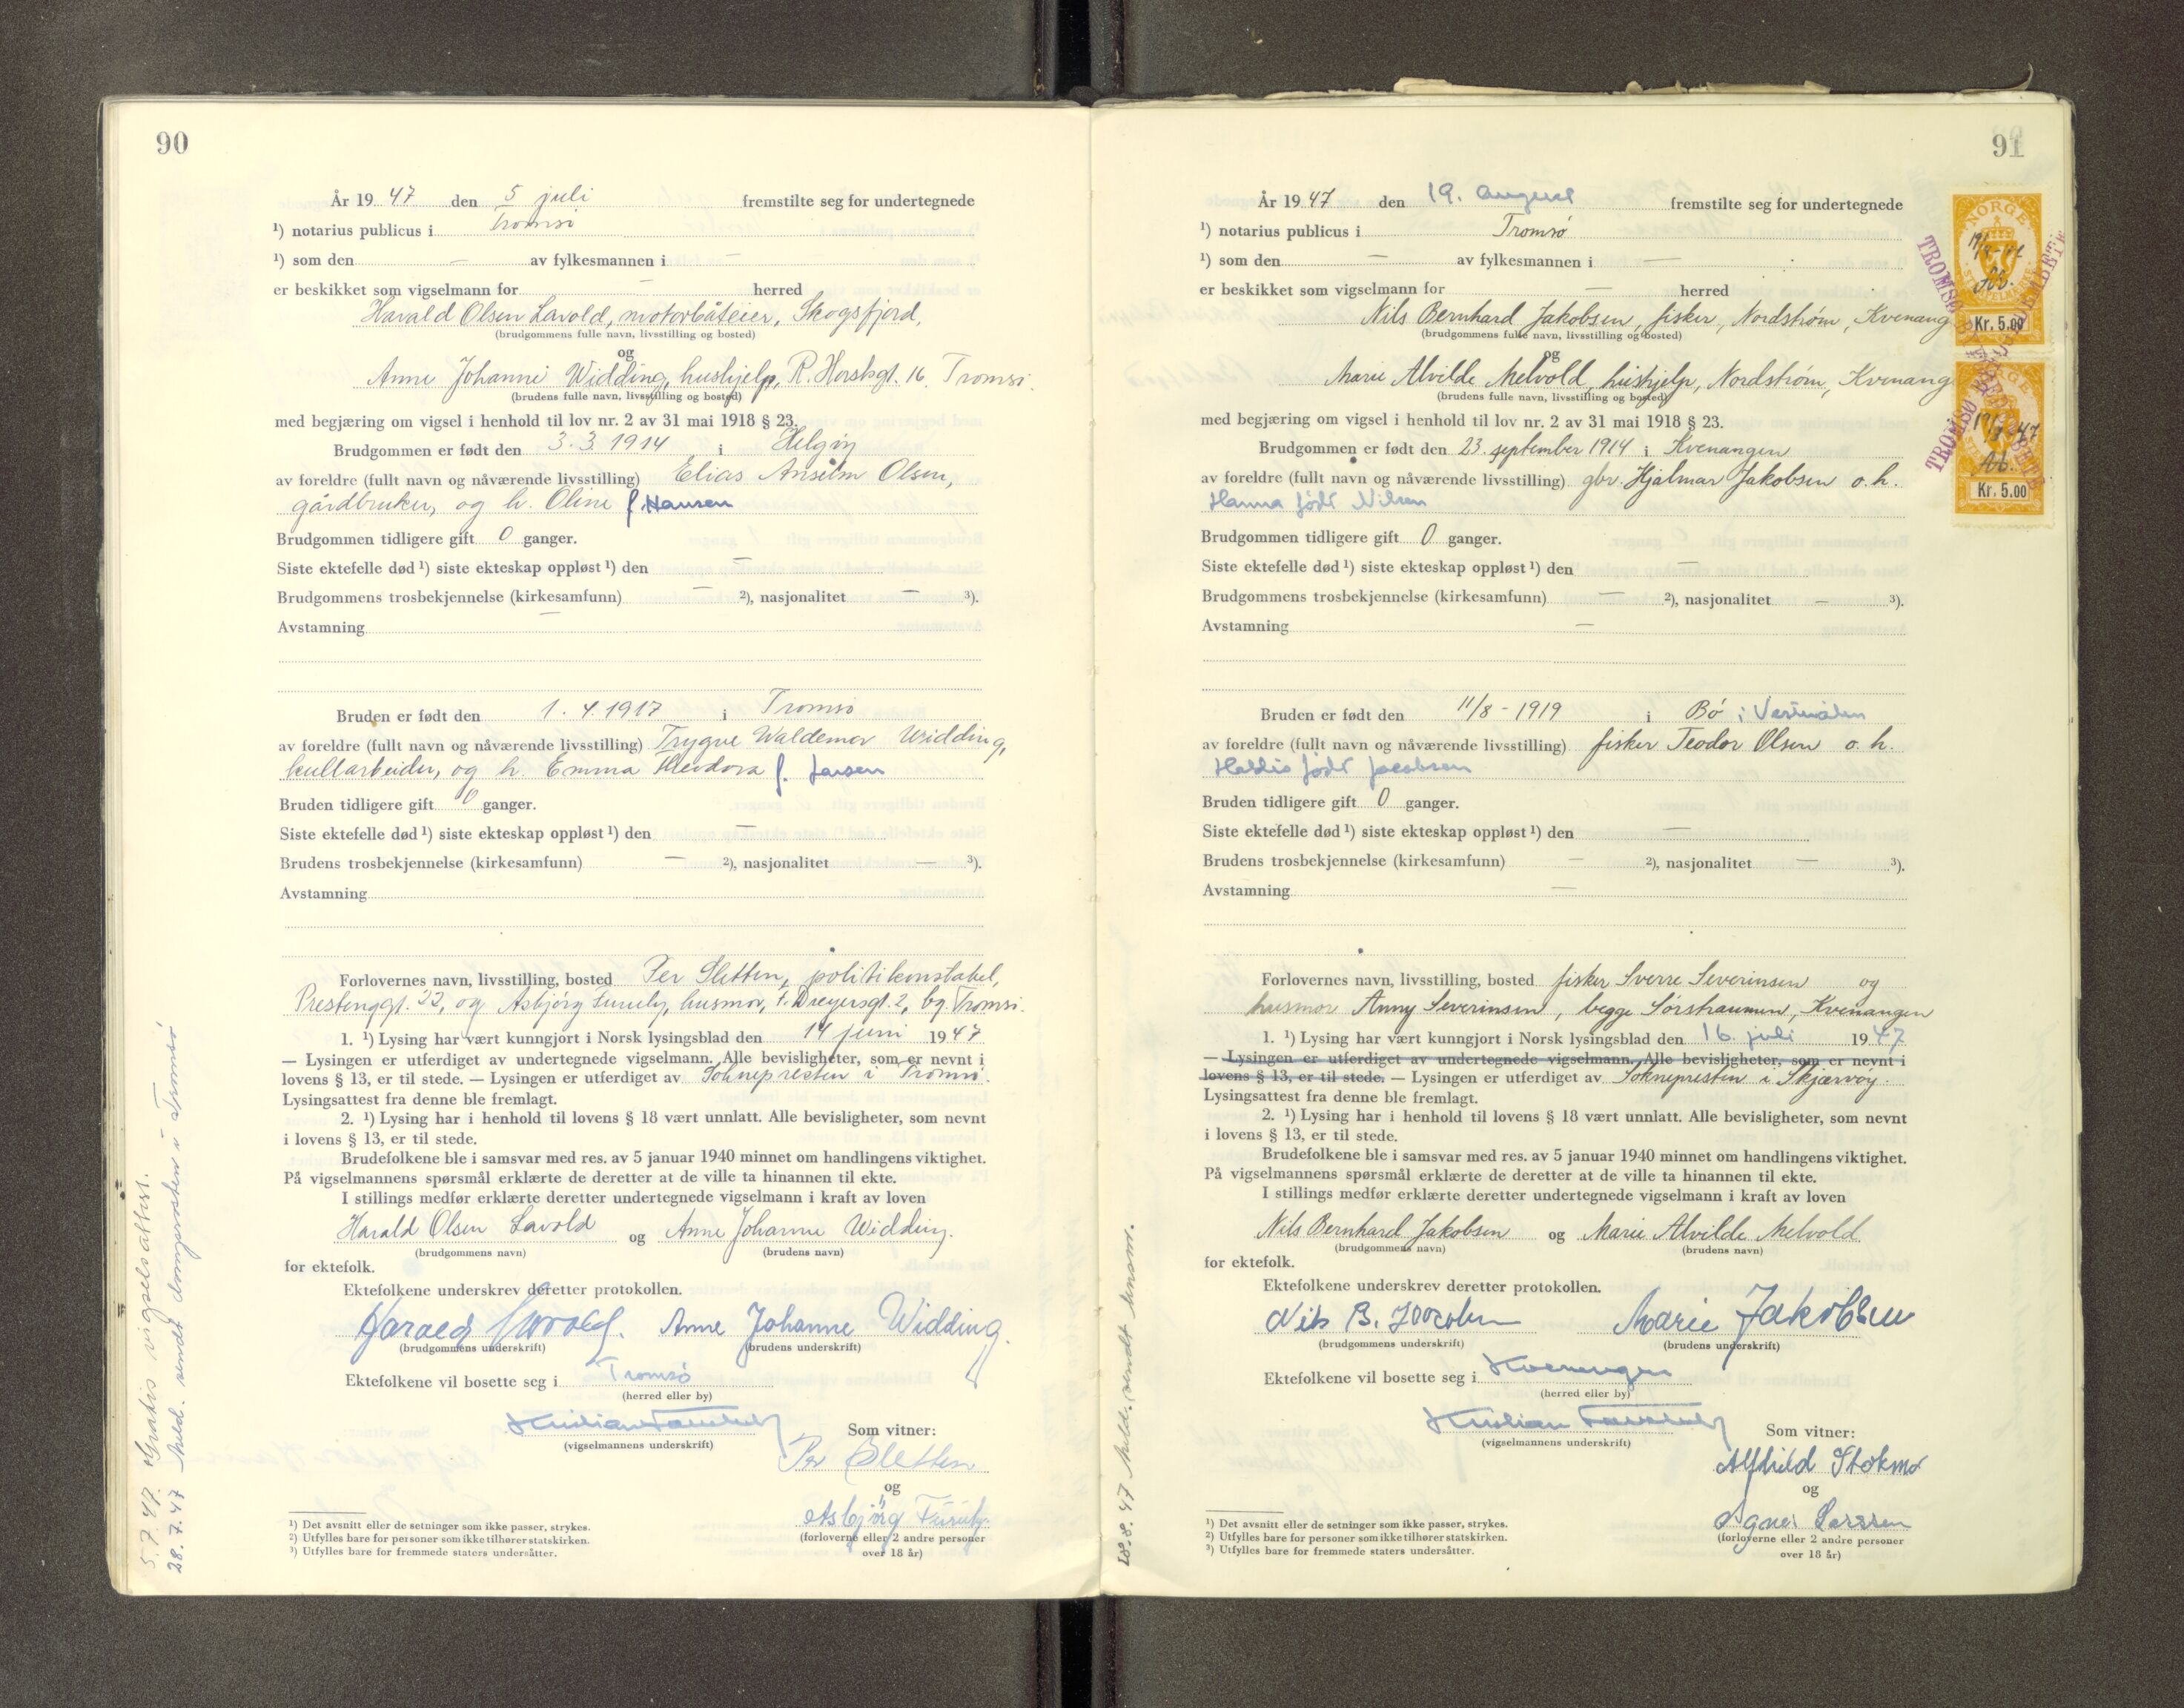 90
År 1947 den 5 juli fremstilte seg for undertegnede
¹) notarius publicus i Tromsø
¹) som den — av fylkesmannen i —
er beskikket som vigselmann for — herred
Harald Olsen Lavold, motorbåteier, Skogsfjord,
(brudgommens fulle navn, livsstilling og bosted)
og
Anne Johanne Widding, hushjelp, R. Horskgt. 16, Tromsø.
(brudens fulle navn, livsstilling og bosted)
med begjæring om vigsel i henhold til lov nr. 2 av 31 mai 1918 § 23.
Brudgommen er født den 3.3.1914 i Helgøy
av foreldre (fullt navn og nåværende livsstilling) Elias Anselm Olsen,
gårdbruker, og h. Oline f. Hansen
Brudgommen tidligere gift 0 ganger.
Siste ektefelle død ¹) siste ekteskap oppløst ¹) den —
Brudgommens trosbekjennelse (kirkesamfunn) — ²), nasjonalitet — ³).
Avstamning —
Bruden er født den 1.4.1917 i Tromsø
av foreldre (fullt navn og nåværende livsstilling) Trygve Waldemar Widding,
kullarbeider, og h. Emma Theodora f. Larsen
Bruden tidligere gift 0 ganger.
Siste ektefelle død ¹) siste ekteskap oppløst ¹) den —
Brudens trosbekjennelse (kirkesamfunn) — ²), nasjonalitet — ³).
Avstamning —
Forlovernes navn, livsstilling, bosted Per Sletten, politikonstabel,
Prestenggt. 22, og Asbjørg Furuly, husmor, f. Dreyersgt. 2, bg. Tromsø.
1. ¹) Lysing har vært kunngjort i Norsk lysingsblad den 14 juni 1947
— Lysingen er utferdiget av undertegnede vigselmann. Alle bevisligheter, som er nevnt i
lovens § 13, er til stede. — Lysingen er utferdiget av Soknepresten i Tromsø.
Lysingsattest fra denne ble fremlagt.
2. ¹) Lysing har i henhold til lovens § 18 vært unnlatt. Alle bevisligheter, som nevnt
i lovens § 13, er til stede.
Brudefolkene ble i samsvar med res. av 5 januar 1940 minnet om handlingens viktighet.
På vigselmannens spørsmål erklærte de deretter at de ville ta hinannen til ekte.
I stillings medfør erklærte deretter undertegnede vigselmann i kraft av loven
Harald Olsen Lavold og Anne Johanne Widding.
(brudgommens navn) (brudens navn)
for ektefolk.
Ektefolkene underskrev deretter protokollen.
Harald Lavold. Anne Johanne Widding.
(brudgommens underskrift) (brudens underskrift)
Ektefolkene vil bosette seg i Tromsø
(herred eller by)
Kristian
(vigselmannens underskrift)
Som vitner:
Per Sletten
og
Asbjörg Furuly.
(forloverne eller 2 andre personer
over 18 år)
¹) Det avsnitt eller de setninger som ikke passer, strykes.
²) Utfylles bare for personer som ikke tilhører statskirken.
³) Utfylles bare for fremmede staters undersåtter.
5.7.47. Gratis vigselsattest.
28.7.47 Meld. sendt domprosten i Tromsø
91
År 1947 den 19. august fremstilte seg for undertegnede
¹) notarius publicus i Tromsø
¹) som den — av fylkesmannen i —
er beskikket som vigselmann for — herred
Nils Bernhard Jakobsen, fisker, Nordstrøm, Kvenang
(brudgommens fulle navn, livsstilling og bosted)
og
Marie Alvilde Melvold, hushjelp, Nordstrøm, Kvenang
(brudens fulle navn, livsstilling og bosted)
med begjæring om vigsel i henhold til lov nr. 2 av 31 mai 1918 § 23.
Brudgommen er født den 23. september 1914 i Kvenangen
av foreldre (fullt navn og nåværende livsstilling) gbr. Hjalmar Jakobsen o. h.
Hanna født Nilsen
Brudgommen tidligere gift 0 ganger.
Siste ektefelle død ¹) siste ekteskap oppløst ¹) den —
Brudgommens trosbekjennelse (kirkesamfunn) — ²), nasjonalitet — ³).
Avstamning —
Bruden er født den 11/8 - 1919 i Bø i Vesterålen
av foreldre (fullt navn og nåværende livsstilling) fisker Teodor Olsen o. h.
Haldis født Jacobsen
Bruden tidligere gift 0 ganger.
Siste ektefelle død ¹) siste ekteskap oppløst ¹) den —
Brudens trosbekjennelse (kirkesamfunn) — ²), nasjonalitet — ³).
Avstamning —
Forlovernes navn, livsstilling, bosted fisker Sverre Severinsen og
husmor Anny Severinsen, begge Sørstraumen, Kvenangen
1. ¹) Lysing har vært kunngjort i Norsk lysingsblad den 16. juli 1947
— Lysingen er utferdiget av undertegnede vigselmann. Alle bevisligheter, som er nevnt i
lovens § 13, er til stede. — Lysingen er utferdiget av Soknepresten i Skjærvøy.
Lysingsattest fra denne ble fremlagt.
2. ¹) Lysing har i henhold til lovens § 18 vært unnlatt. Alle bevisligheter, som nevnt
i lovens § 13, er til stede.
Brudefolkene ble i samsvar med res. av 5 januar 1940 minnet om handlingens viktighet.
På vigselmannens spørsmål erklærte de deretter at de ville ta hinannen til ekte.
I stillings medfør erklærte deretter undertegnede vigselmann i kraft av loven
Nils Bernhard Jakobsen og Marie Alvilde Melvold
(brudgommens navn) (brudens navn)
for ektefolk.
Ektefolkene underskrev deretter protokollen.
Nils B. Jacobsen Marie Jakobsen
(brudgommens underskrift) (brudens underskrift)
Ektefolkene vil bosette seg i Kvenangen
(herred eller by)
Kristian
(vigselmannens underskrift)
Som vitner:
Alfhild Stokmo
og
Agnes Larssen
(forloverne eller 2 andre personer
over 18 år)
¹) Det avsnitt eller de setninger som ikke passer, strykes.
²) Utfylles bare for personer som ikke tilhører statskirken.
³) Utfylles bare for fremmede staters undersåtter.
28.8.47 Meld. sendt
NORGE
19/8-47
Kr. 5.00
NORGE
19/8-47
Kr. 5.00
TROMSØ
TROMSØ